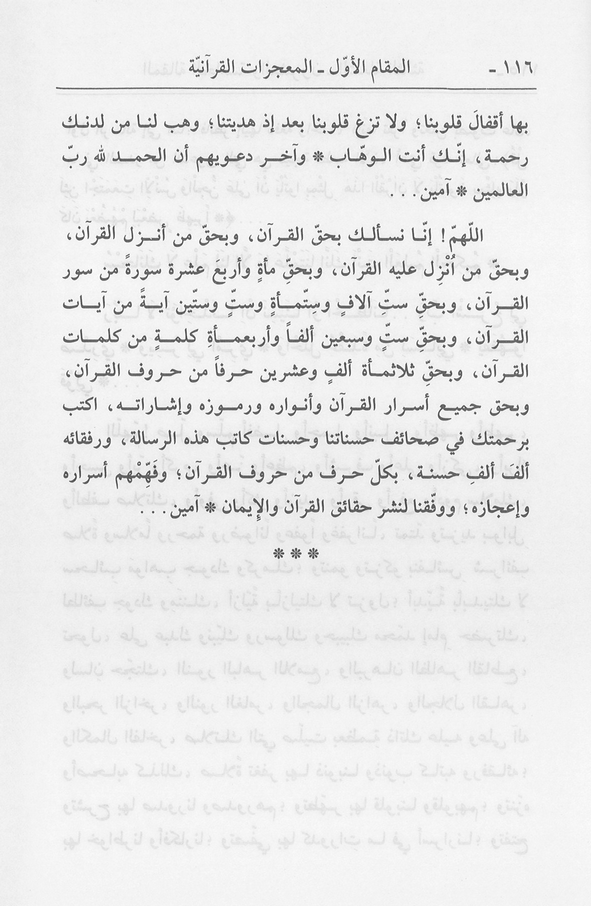 ١١٦ - المقام الأوّل ـ المعجزات القرآنيّة
بها أقفالَ قلوبنا؛ ولا تزغ قلوبنا بعد إذ هديتنا؛ وهب لنا من لدنك
رحمة، إنّك أنت الوهّاب * وآخر دعويهم أن الحمد لله ربّ
العالمين * آمين...
اللّهمّ! إنّا نسألك بحقّ القرآن، وبحقّ من أنزل القرآن،
وبحقّ من اُنْزِل عليه القرآن، وبحقِّ مأةٍ وأربعَ عشرة سورةً من سور
القرآن، وبحقّ ستِّ آلافٍ وستّمأةٍ وستٍّ وستّين آيةً من آيات
القرآن، وبحقّ ستٍّ وسبعين ألفاً وأربعمأةِ كلمةٍ من كلمات
القرآن، وبحقِّ ثلاثمأة ألفٍ وعشرين حرفاً من حروف القرآن،
وبحق جميع أسرار القرآن وأنواره ورموزه وإشاراته، اكتب
برحمتك في صحائف حسناتنا وحسنات كاتب هذه الرسالة، ورفقائه
ألفَ ألفِ حسنة، بكلّ حرف من حروف القرآن؛ وفَهِّمْهم أسراره
وإعجازه؛ ووفّقنا لنشر حقائق القرآن والإيمان * آمين...
* * *